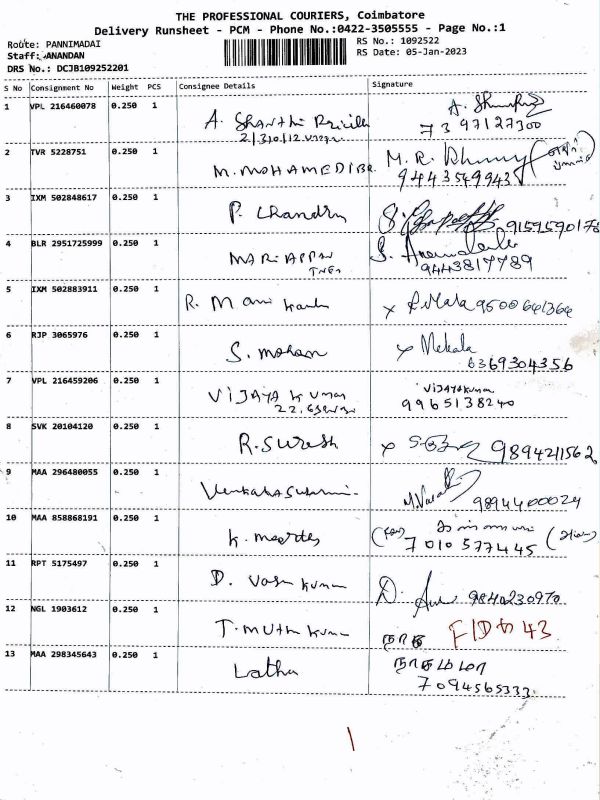 THE PROFESSIONAL COURIERS, Coimbatore
Delivery Runsheet - PCM - Phone No.:0422-3505555 - Page No.:1
Route: PANNIMADAI
RS No.: 1092522
Staff: ANANDAN
RS Date: 05-Jan-2023
DRS No.: DCJB109252201
S No Consignment No Weight PCS Consignee Details Signature
1 VPL 216460078 0.250 1 A. Shanthi
7397127300
2 TVR 5228751 0.250 1 M. MOHAMED M. R.
9443549943
3 IXM 502848617 0.250 1 P. Chandru 9159590178
4 BLR 2951725999 0.250 1 MARIAPPAN S.
9443817789
5 IXM 502883911 0.250 1 R. Mani x R. Mala 9500641364
6 RJP 3065976 0.250 1 S. mohan x Mekala
6369304356
7 VPL 216459206 0.250 1 VIJAYA KUMAR VIJAYAKUMAR
9965138240
8 SVK 20104120 0.250 1 R. Suresh x 9894211562
9 MAA 296480055 0.250 1 9894400024
10 MAA 858868191 0.250 1 K.
7010577445
11 RPT 5175497 0.250 1 D. Vasu Kumar D. 9840230970
12 NGL 1903612 0.250 1 T. Muthu Kumar 43
13 MAA 298345643 0.250 1 Latha நாகம்மா
7094565333